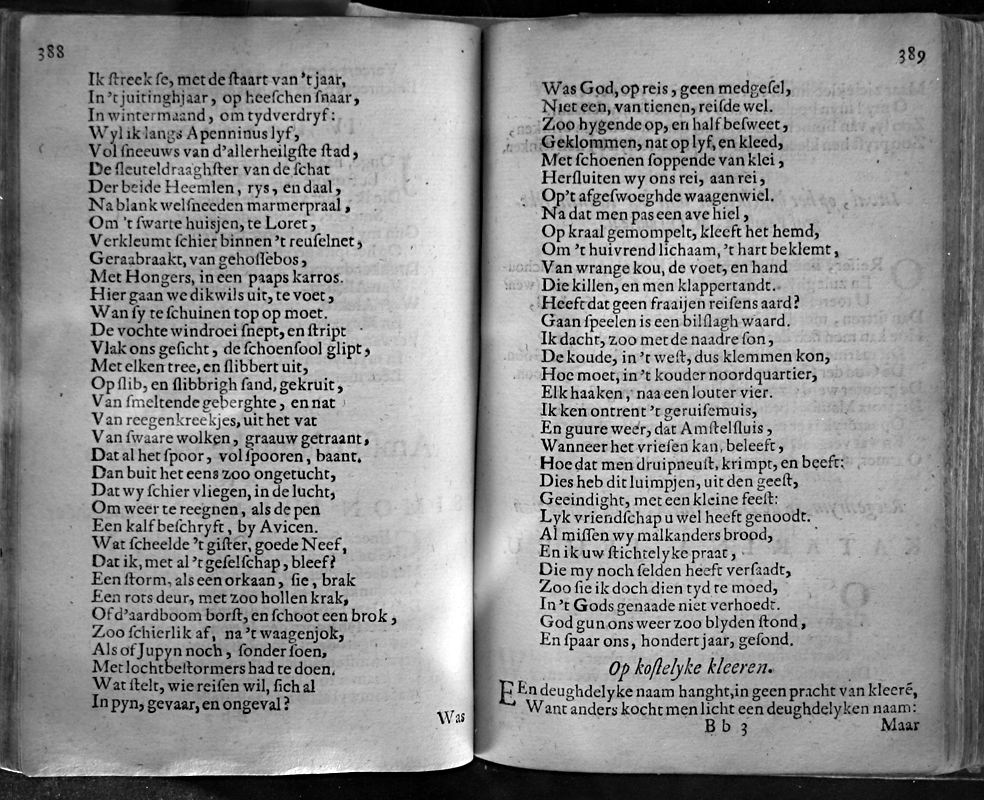 388
Ik ſtreek ſe, met de ſtaart van 't jaar,
In 't juitinghjaar, op heeſchen ſnaar,
In wintermaand, om tydverdryf:
Wyl ik langs Apenninus lyf,
Vol ſneeuws van d'allerheilgſte ſtad,
De ſleuteldraaghſter van de ſchat
Der beide Heemlen, rys, en daal,
Na blank welſneeden marmerpraal,
Om 't ſwarte huisjen, te Loret,
Verkleumt ſchier binnen 't reuſelnet,
Geraabraakt, van gehoſſebos,
Met Hongers, in een paaps karros.
Hier gaan we dikwils uit, te voet,
Wan ſy te ſchuinen top op moet.
De vochte windroei ſnept, en ſtript
Vlak ons geſicht, de ſchoenſool glipt,
Met elken tree, en ſlibbert uit,
Op ſlib, en ſlibbrigh ſand, gekruit,
Van ſmeltende geberghte, en nat
Van reegenkreekjes, uit het vat
Van ſwaare wolken, graauw getraant,
Dat al het ſpoor, vol ſpooren, baant.
Dan buit het eens zoo ongetucht,
Dat wy ſchier vliegen, in de lucht,
Om weer te reegnen, als de pen
Een kalf beſchryft, by Avicen.
Wat ſcheelde 't giſter, goede Neef,
Dat ik, met al 't geſelſchap, bleef?
Een ſtorm, als een orkaan, ſie, brak
Een rots deur, met zoo hollen krak,
Of d'aardboom borſt, en ſchoot een brok,
Zoo ſchierlik af, na 't waagenjok,
Als of Jupyn noch, ſonder ſoen,
Met lochtbeſtormers had te doen.
Wat ſtelt, wie reiſen wil, ſich al
In pyn, gevaar, en ongeval?
Was
389
Was God, op reis, geen medgeſel,
Niet een, van tienen, reiſde wel.
Zoo hygende op, en half beſweet,
Geklommen, nat op lyf, en kleed,
Met ſchoenen ſoppende van klei,
Herſluiten wy ons rei, aan rei,
Op 't afgeſwoeghde waagenwiel.
Na dat men pas een ave hiel,
Op kraal gemompelt, kleeft het hemd,
Om 't huivrend lichaam, 't hart beklemt,
Van wrange kou, de voet, en hand
Die killen, en men klappertandt.
Heeft dat geen fraaijen reiſens aard?
Gaan ſpeelen is een bilſlagh waard.
Ik dacht, zoo met de naadre ſon,
De koude, in 't weſt, dus klemmen kon,
Hoe moet, in 't kouder noordquartier,
Elk haaken, naa een louter vier.
Ik ken ontrent 't geruiſemuis,
En guure weer, dat Amſtelſluis,
Wanneer het vrieſen kan, beleeft,
Hoe dat men druipneuſt, krimpt, en beeft:
Dies heb dit luimpjen, uit den geeſt,
Geeindight, met een kleine feeſt:
Lyk vriendſchap u wel heeft genoodt.
Al miſſen wy malkanders brood,
En ik uw ſtichtelyke praat,
Die my noch ſelden heeft verſaadt,
Zoo ſie ik doch dien tyd te moed,
In 't Gods genaade niet verhoedt.
God gun ons weer zoo blyden ſtond,
En ſpaar ons, hondert jaar, geſond.
Op koſtelyke kleeren.
EEn deughdelyke naam hanght, in geen pracht van kleerē,
Want anders kocht men licht een deughdelyken naam:
B b 3
Maar